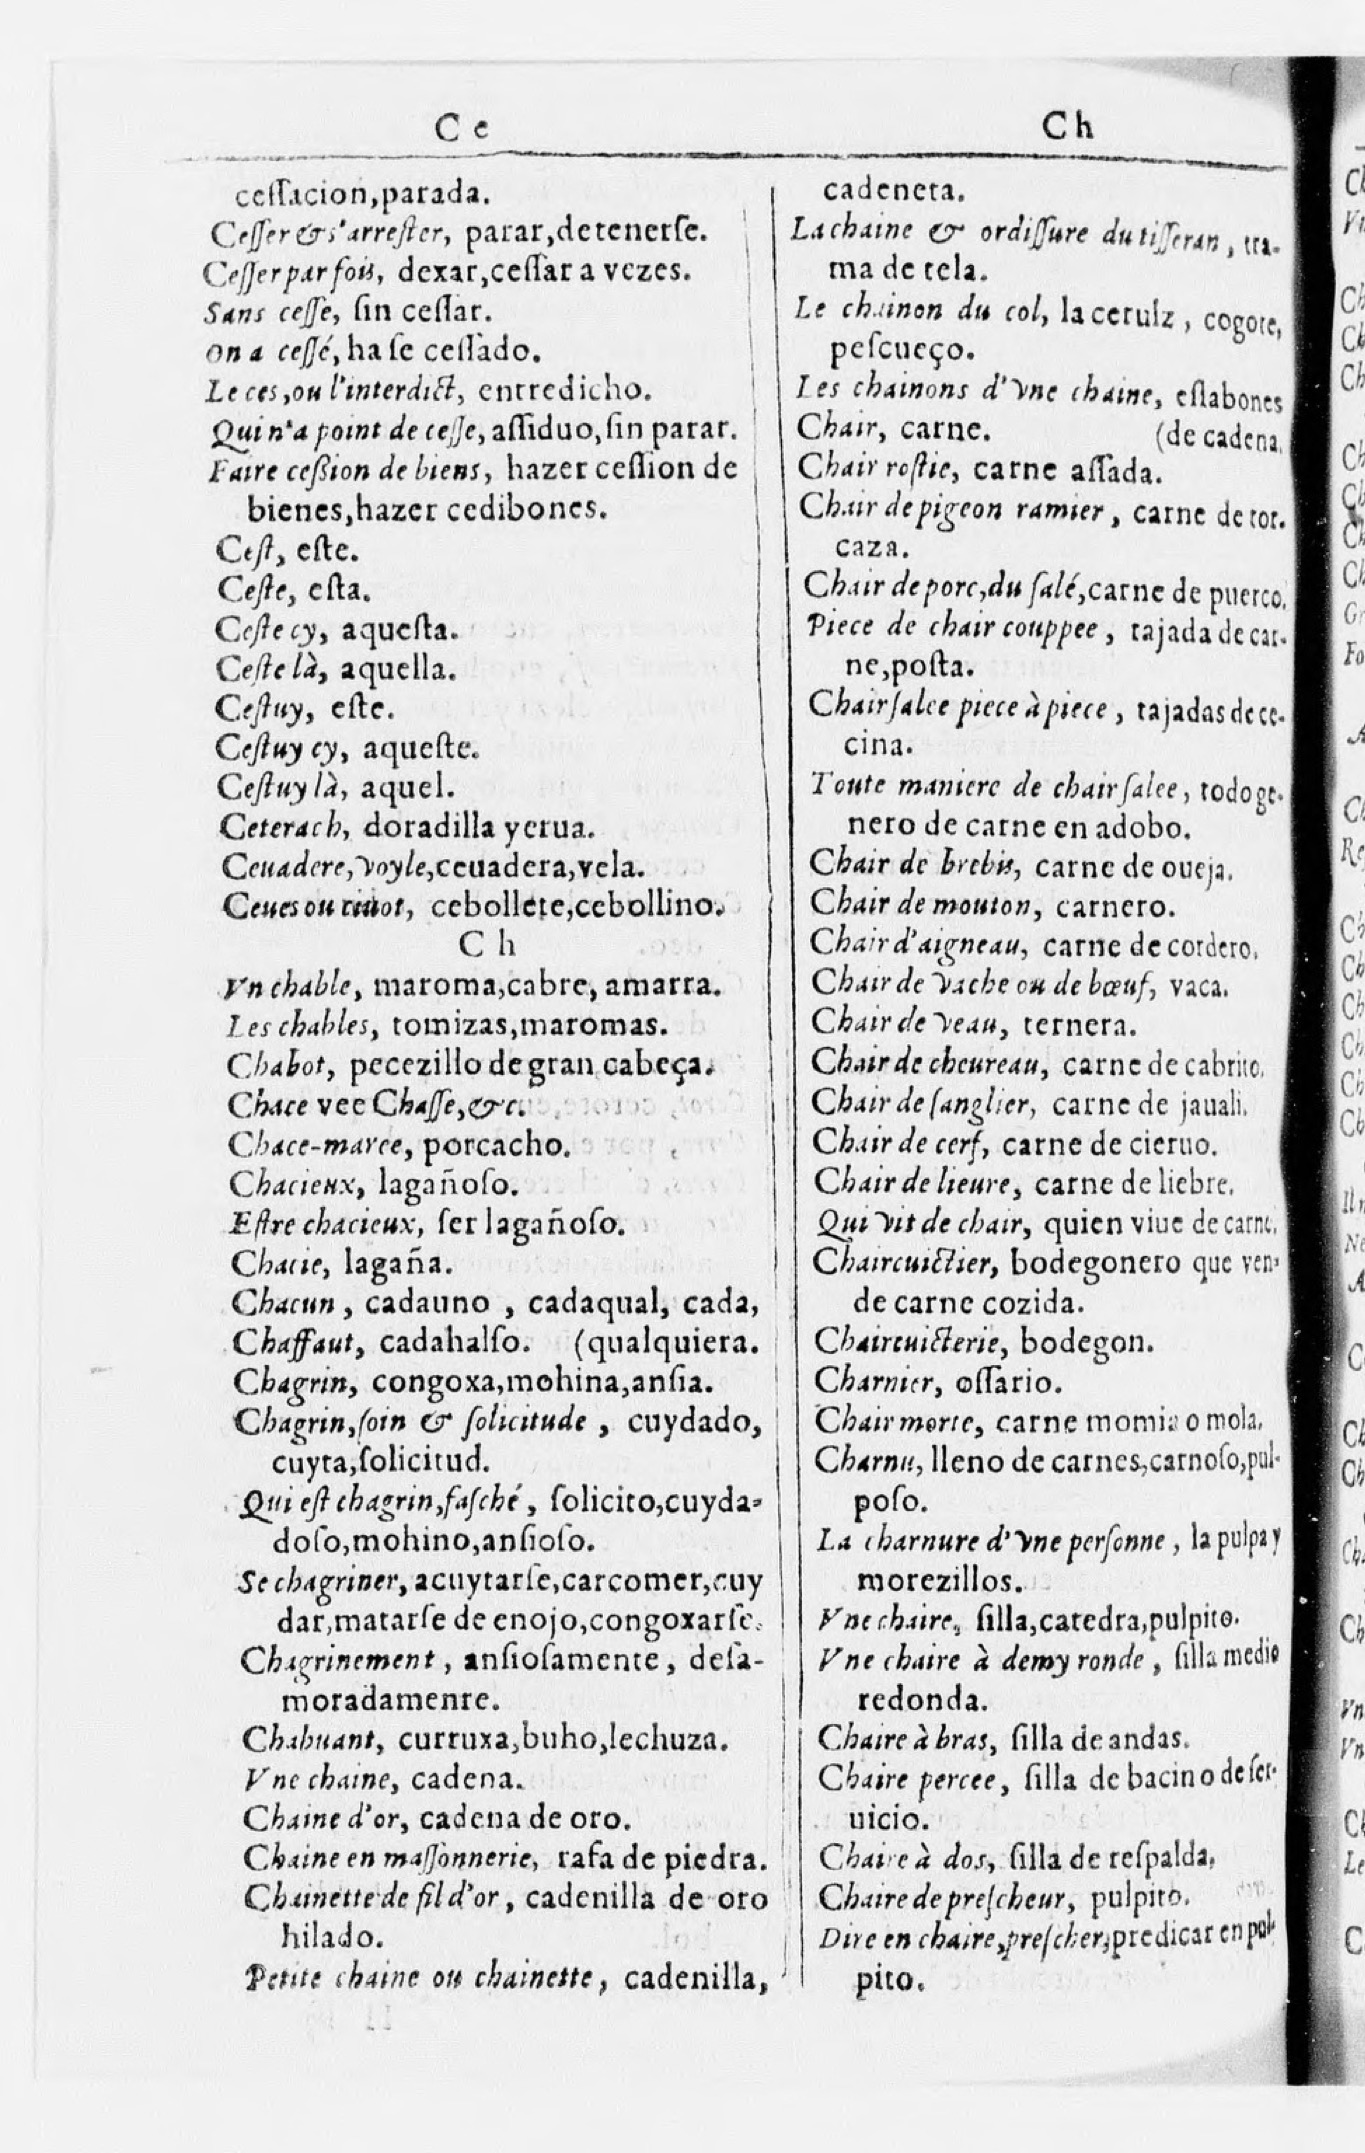 C e
ceſſacion,parada.
Ceſſer & s'arreſter, parar,detenerſe.
Ceſſer par fois, dexar,ceſſar a vezes.
Sans ceſſe, ſin ceſſar.
on a ceſſé, ha ſe ceſſado.
Le ces,ou l'interdict, entredicho.
Qui n'a point de ceſſe, aſſiduo,ſin parar.
Faire ceßion de biens, hazer ceſſion de
bienes,hazer cedibones.
Ceſt, eſte.
Ceſte, eſta.
Ceſte cy, aqueſta.
Ceſte là, aquella.
Ceſtuy, eſte.
Ceſtuy cy, aqueſte.
Ceſtuy là, aquel.
Ceterach, doradilla yerua.
Ceuadere, voyle,ceuadera,vela.
Ceues ou ciuot, cebollete,cebollino.
C h
Vn chable, maroma,cabre, amarra.
Les chables, tomizas,maromas.
Chabot, pecezillo de gran cabeça.
Chace vee Chaſſe,&c.
Chace-maree, porcacho.
Chacieux, lagañoſo.
Eſtre chacieux, ſer lagañoſo.
Chacie, lagaña.
Chacun, cadauno, cadaqual, cada,
Chaffaut, cadahalſo. (qualquiera.
Chagrin, congoxa,mohina,anſia.
Chagrin,ſoin & ſolicitude, cuydado,
cuyta,ſolicitud.
Qui eſt chagrin,faſché, ſolicito,cuyda-
doſo,mohino,anſioſo.
Se chagriner, acuytarſe,carcomer,cuy
dar,matarſe de enojo,congoxarſe.
Chagrinement, anſioſamente, deſa-
moradamente.
Chahuant, curruxa,buho,lechuza.
Vne chaine, cadena.
Chaine d'or, cadena de oro.
Chaine en maſſonnerie, rafa de piedra.
Chainette de fil d'or, cadenilla de oro
hilado.
Petite chaine ou chainette, cadenilla,
C h
cadeneta.
La chaine & ordiſſure du tiſſeran, tra-
ma de tela.
Le chainon du col, la ceruiz, cogote,
peſcueço.
Les chainons d'vne chaine, eſlabones
Chair, carne. (de cadena.
Chair roſtie, carne aſſada.
Chair de pigeon ramier, carne de tor-
caza.
Chair de porc,du ſalé,carne de puerco.
Piece de chair couppee, tajada de car-
ne,poſta.
Chair ſalee piece à piece, tajadas de ce-
cina.
Toute maniere de chair ſalee, todo ge-
nero de carne en adobo.
Chair de brebis, carne de oueja.
Chair de mouton, carnero.
Chair d'aigneau, carne de cordero.
Chair de vache ou de bœuf, vaca.
Chair de veau, ternera.
Chair de cheureau, carne de cabrito.
Chair de ſanglier, carne de jauali.
Chair de cerf, carne de cieruo.
Chair de lieure, carne de liebre.
Qui vit de chair, quien viue de carne.
Chaircuictier, bodegonero que ven-
de carne cozida.
Chaircuicterie, bodegon.
Charnier, oſſario.
Chair morte, carne momia o mola.
Charnu, lleno de carnes,carnoſo,pul-
poſo.
La charnure d'vne perſonne, la pulpa y
morezillos.
Vne chaire, ſilla,catedra,pulpito.
Vne chaire à demy ronde, ſilla medio
redonda.
Chaire à bras, ſilla de andas.
Chaire percee, ſilla de bacin o de ſer-
uicio.
Chaire à dos, ſilla de reſpalda.
Chaire de preſcheur, pulpito.
Dire en chaire,preſcher,predicar en pul-
pito.